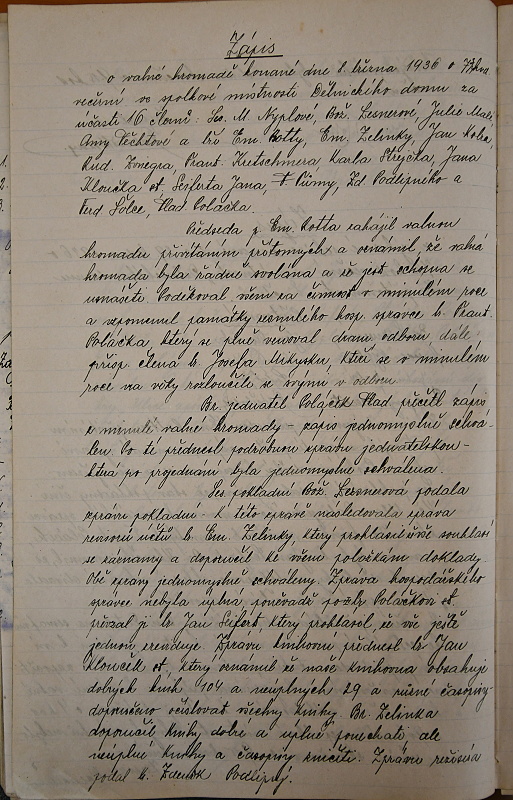 Zápis
o valné hromadě konané dne 8. března 1936 o
večerní ve spolkové místnosti Dělnického domu za
účasti 16 členů: Ses. M. Nyplové, Bož. Lesnerové, Julie Malé,
Anny Těchtové a bří Em. Rotty, Em. Zelinky, Jan
Rud. Zonegra, Frant. Kretschmera Karla Strejčka, Jana
Kloučka st., Seiferta Jana, F. Zd. Podlipného a
Ferd Šolce, Vlad Poláčka.
Předseda p. Em. Rotta zahájil valnou
hromadu přivítáním přítomných a oznámil, že valná
hromada byla řádně svolána a že jest schopna se
usnášeti. Poděkoval všem za činnost v minulém roce
a vzpomenul památky zesnulého hosp. správce b. Frant.
Poláčka, který se plně věnoval dram. odboru, dále
přísp. člena b. Josefa Mikysku, kteří se v minulém
roce na vždy rozloučili se svým odborem.
Br. jednatel Poláček Vlad. přečetl zápis
z minulé valné hromady - zápis jednomyslně schvá-
len. Po té přednesl podrobnou zprávu jednatelskou -
která po projednání byla jednomyslně schválena.
Ses pokladní Bož. Lessnerová podala
zprávu pokladní - k této zprávě následovala zpráva
revisorů účtů b. Em. Zelinky, který prohlásil souhlasí
se záznamy a doporučil ke všem položkám doklady.
Obě zprávy jednomyslně schváleny. Zpráva hospodářského
správce nebyla úplná, poněvadž po Poláčkovi st.
převzal ji br Jan Seifert, který prohlásil, že vše ještě
jednou zreviduje. Zprávu knihovní přednesl br Jan
Klouček st., který oznámil že naše knihovna obsahuje
dobrých knih 104 a neúplných 29 a různé časopisy -
doporučeno očíslovat všechny knihy. Br. Zelinka
doporučil knihy dobré a úplné ponechati ale
neúplné knihy a časopisy zničiti. Zprávu režiséra
podal b. Zdeněk Podlipný.